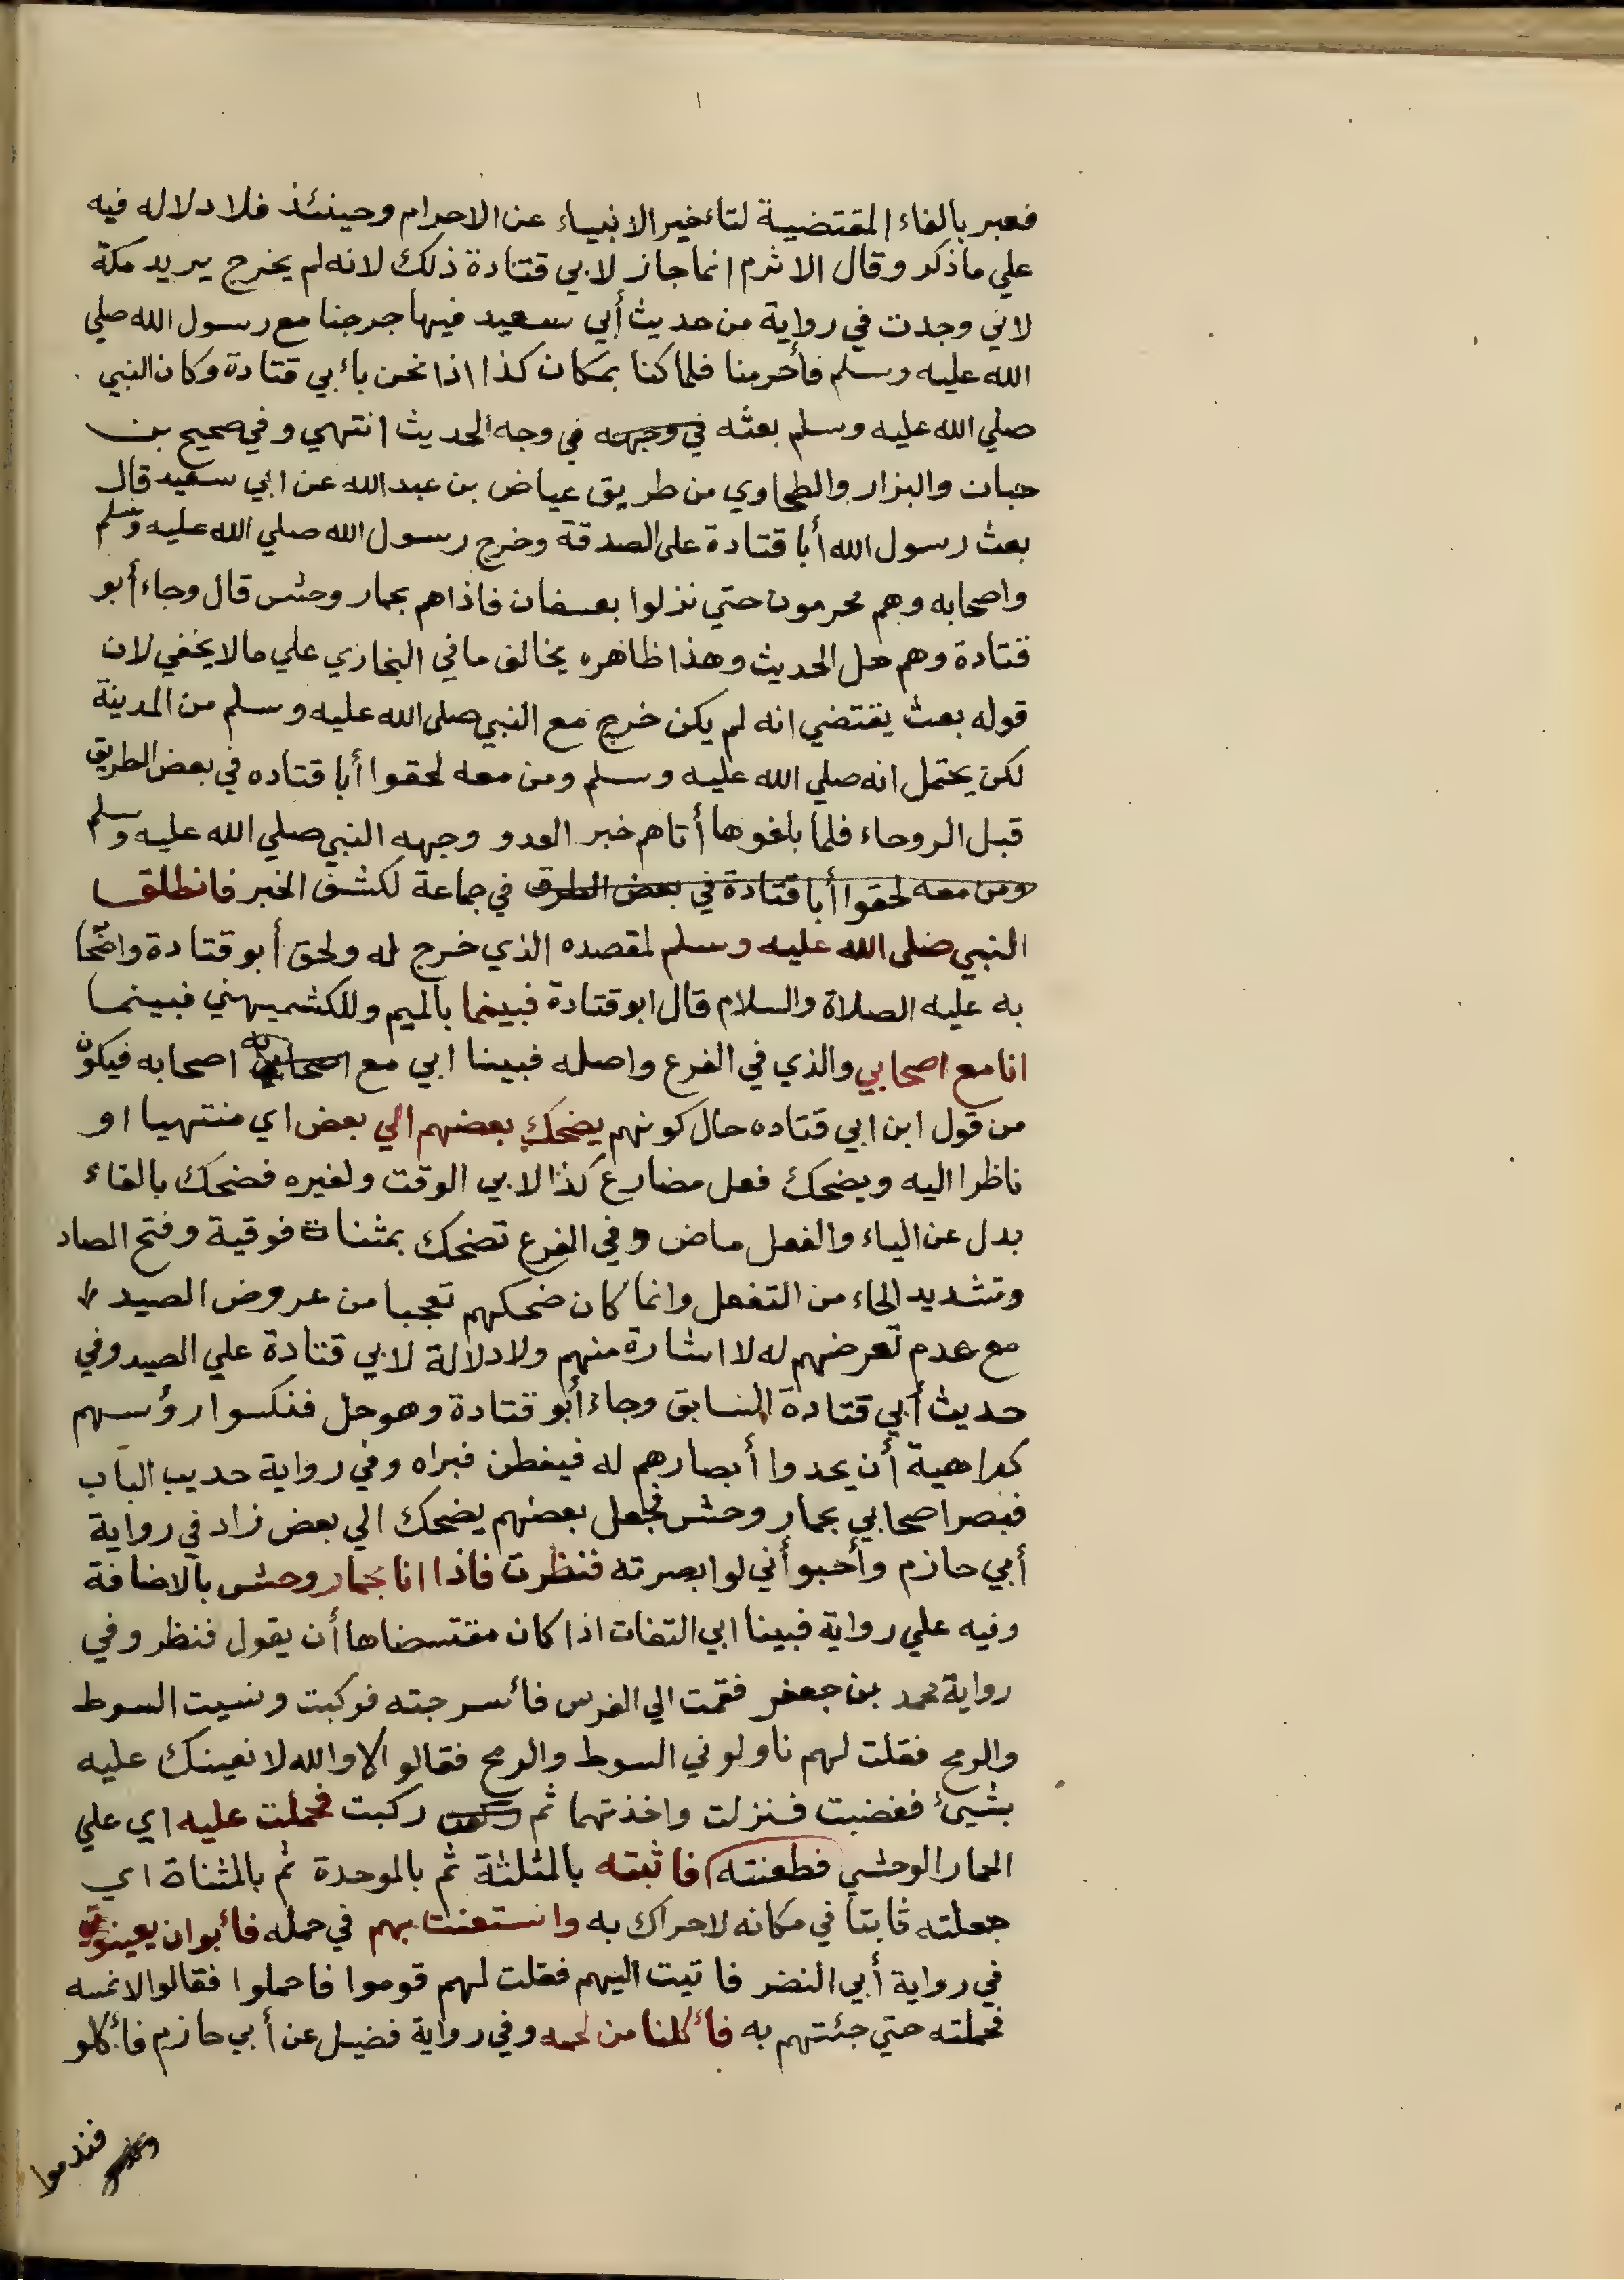 فعبر بالفاء المقتضية لتاءخير الانبياء عن الاحرام وحينئذ فلا دلاله فيه
علي ماذكر وقال الاثرم انما جاز لابي قتادة ذلك لانه لم يخرج يريد مكة
لاني وجدت في رواية من حديث أبي سعيد فيها خرجنا مع رسول الله صلي
الله عليه وسلم فأحرمنا فلما كنا بمكان كذا اذا نحن باءبي قتادة وكان النبي
صلي الله عليه وسلم بعثه في وجهه في وجه الحديث انتهي وفي صحيح بن
حبان والبزار والطحاوي من طريق عياض بن عبد الله عن ابي سعيد قال
بعث رسول الله أبا قتادة على الصدقة وخرج رسول الله صلي الله عليه وسلم
واصحابه وهم محرمون حتي نزلوا بعسفان فاذاهم بحمار وحش قال وجاء أبو
قتادة وهم حل الحديث وهذا ظاهره يخالف ما في البخاري علي ما لا يخفي لان
قوله بعث يقتضي انه لم يكن خرج مع النبي صلى الله عليه وسلم من المدينة
لكن يحتمل انه صلي الله عليه وسلم ومن معه لحقوا أبا قتاده في بعض الطريق
قبل الروحاء فلما بلغوها أتاهم خبر العدو وجهه النبي صلي الله عليه وسلم
ومن معه لحقوا أبا قتادة في بعض الطرق في جماعة لكشف الخبر فانطلق
النبي صلى الله عليه وسلم لمقصده الذي خرج له ولحق أبو قتادة واصحابه
به عليه الصلاة والسلام قال ابو قتادة فبينما بالميم وللكشميهني فبينما
انا مع اصحابي والذي في الفرع واصله فبينا ابي مع اصحابه اصحابه فيكون
من قول ابن ابي قتاده حال كونهم يضحك بعضهم الي بعض اي منتهيا او
ناظرا اليه ويضحك فعل مضارع كذا لابي الوقت ولغيره فضحك بالفاء
بدل عن الياء والفعل ماض وفي الفرع تضحك بمثناة فوقية وفتح الصاد
وتشديد الحاء من التفعل وانما كان ضحكهم تعجبا من عروض الصيد
مع عدم تعرضهم له لا اشارة منهم ولا دلالة لابي قتادة علي الصيد وفي
حديث أبي قتادة السابق وجاء أبو قتادة وهو حل فنكسوا رؤسهم
كراهية أن يحدوا أبصارهم له فيفطن فيراه وفي رواية حديث الباب
فبصر اصحابي بحمار وحش فجعل بعضهم يضحك الي بعض زاد في رواية
أبي حازم وأحبوا أني لو ابصرته فنظرت فاذا انا بحمار وحش بالاضافة
وفيه علي رواية فبينا ابي التفات اذا كان مقتسضاها أن يقول فنظر وفي
رواية محمد بن جعفر فقمت الي الفرس فاءسرجته فركبت ونسيت السوط
والرمح فقلت لهم ناولوني السوط والرمح فقالوا لا والله لا نعينك عليه
بشيئ فغضبت فنزلت واخذتهما ثم ركبت فحملت عليه اي علي
الحمار الوحشي فطعنته فاثبته بالمثلثة ثم بالموحدة ثم بالمثناة اي
جعلته ثابتا في مكانه لا حراك به واستعنت بهم في حمله فاءبوا ان يعينوني
في رواية أبي النضر فاتيت اليهم فقلت لهم قوموا فاحملوا فقالوا لا نمسه
فحملته حتي جئتهم به فاءكلنا من لحمه وفي رواية فضيل عن أبي حازم فاءكلو
فندموا